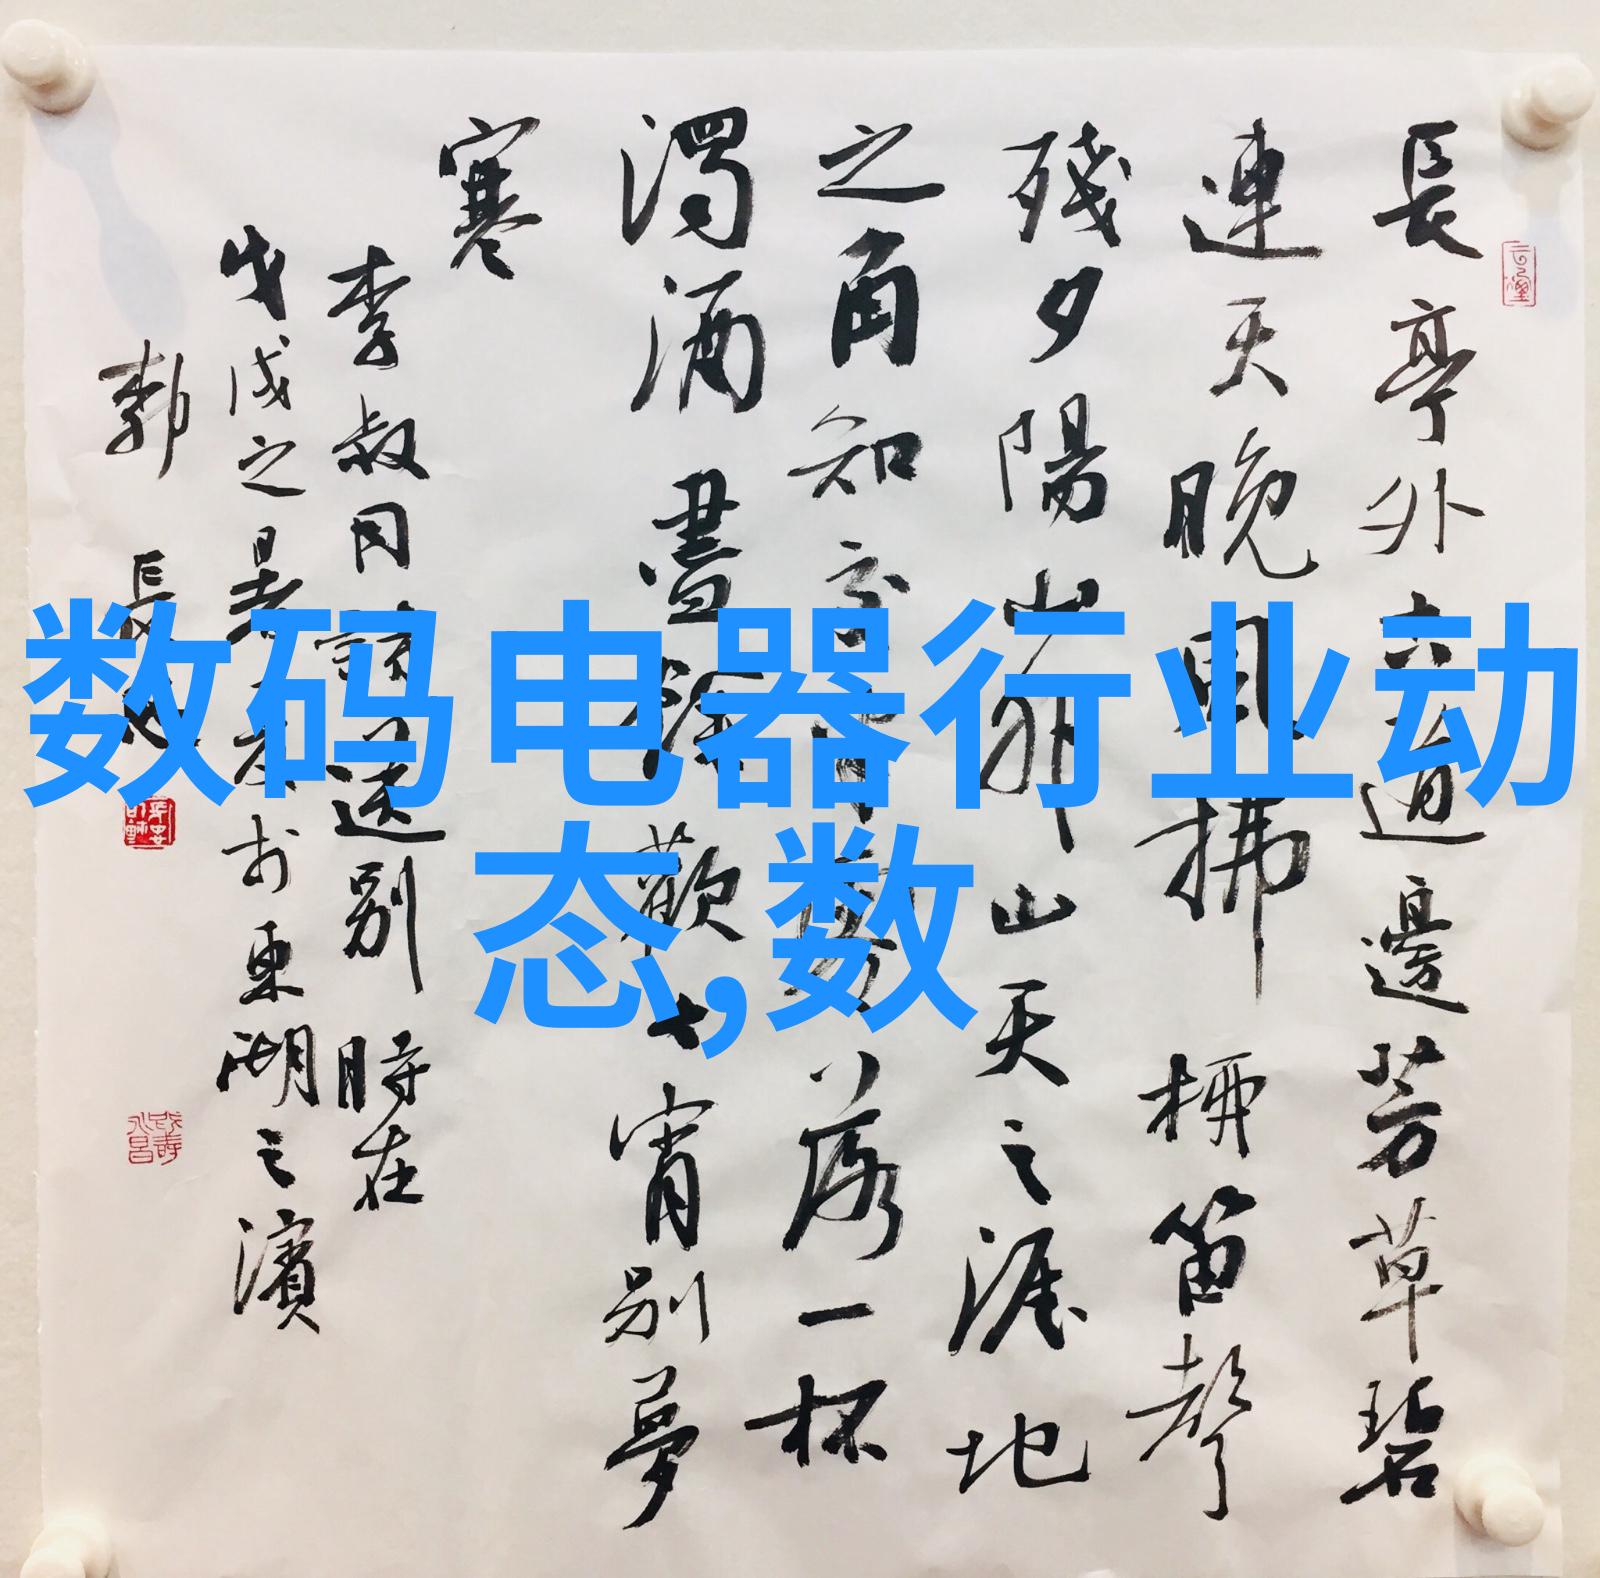 長亭外古道邊芳草碧
連天晚風拂柳笛聲
殘夕陽山外山天之涯地
之角知交半零落一杯
濁酒盡餘歡今宵別夢
寒
李叔同詞送別 時在
戊戌之暑於東湖之濱
長
数码电器行业动
态,数